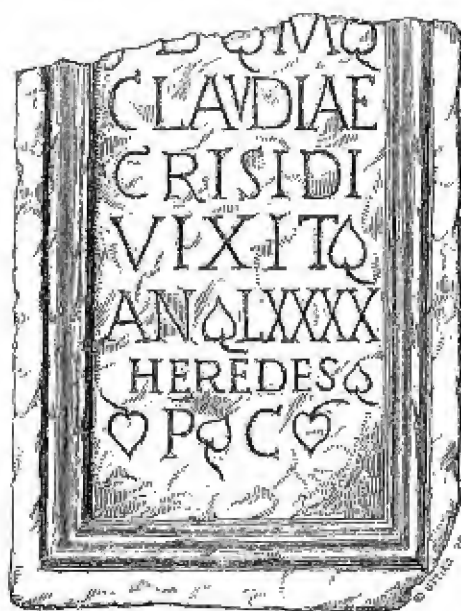 D ❧ M ❧
CLAVDIAE
CRISIDI
VIXIT ❧
AN ❧ LXXXX
HEREDES ❧
❧ P ❧ C ❧